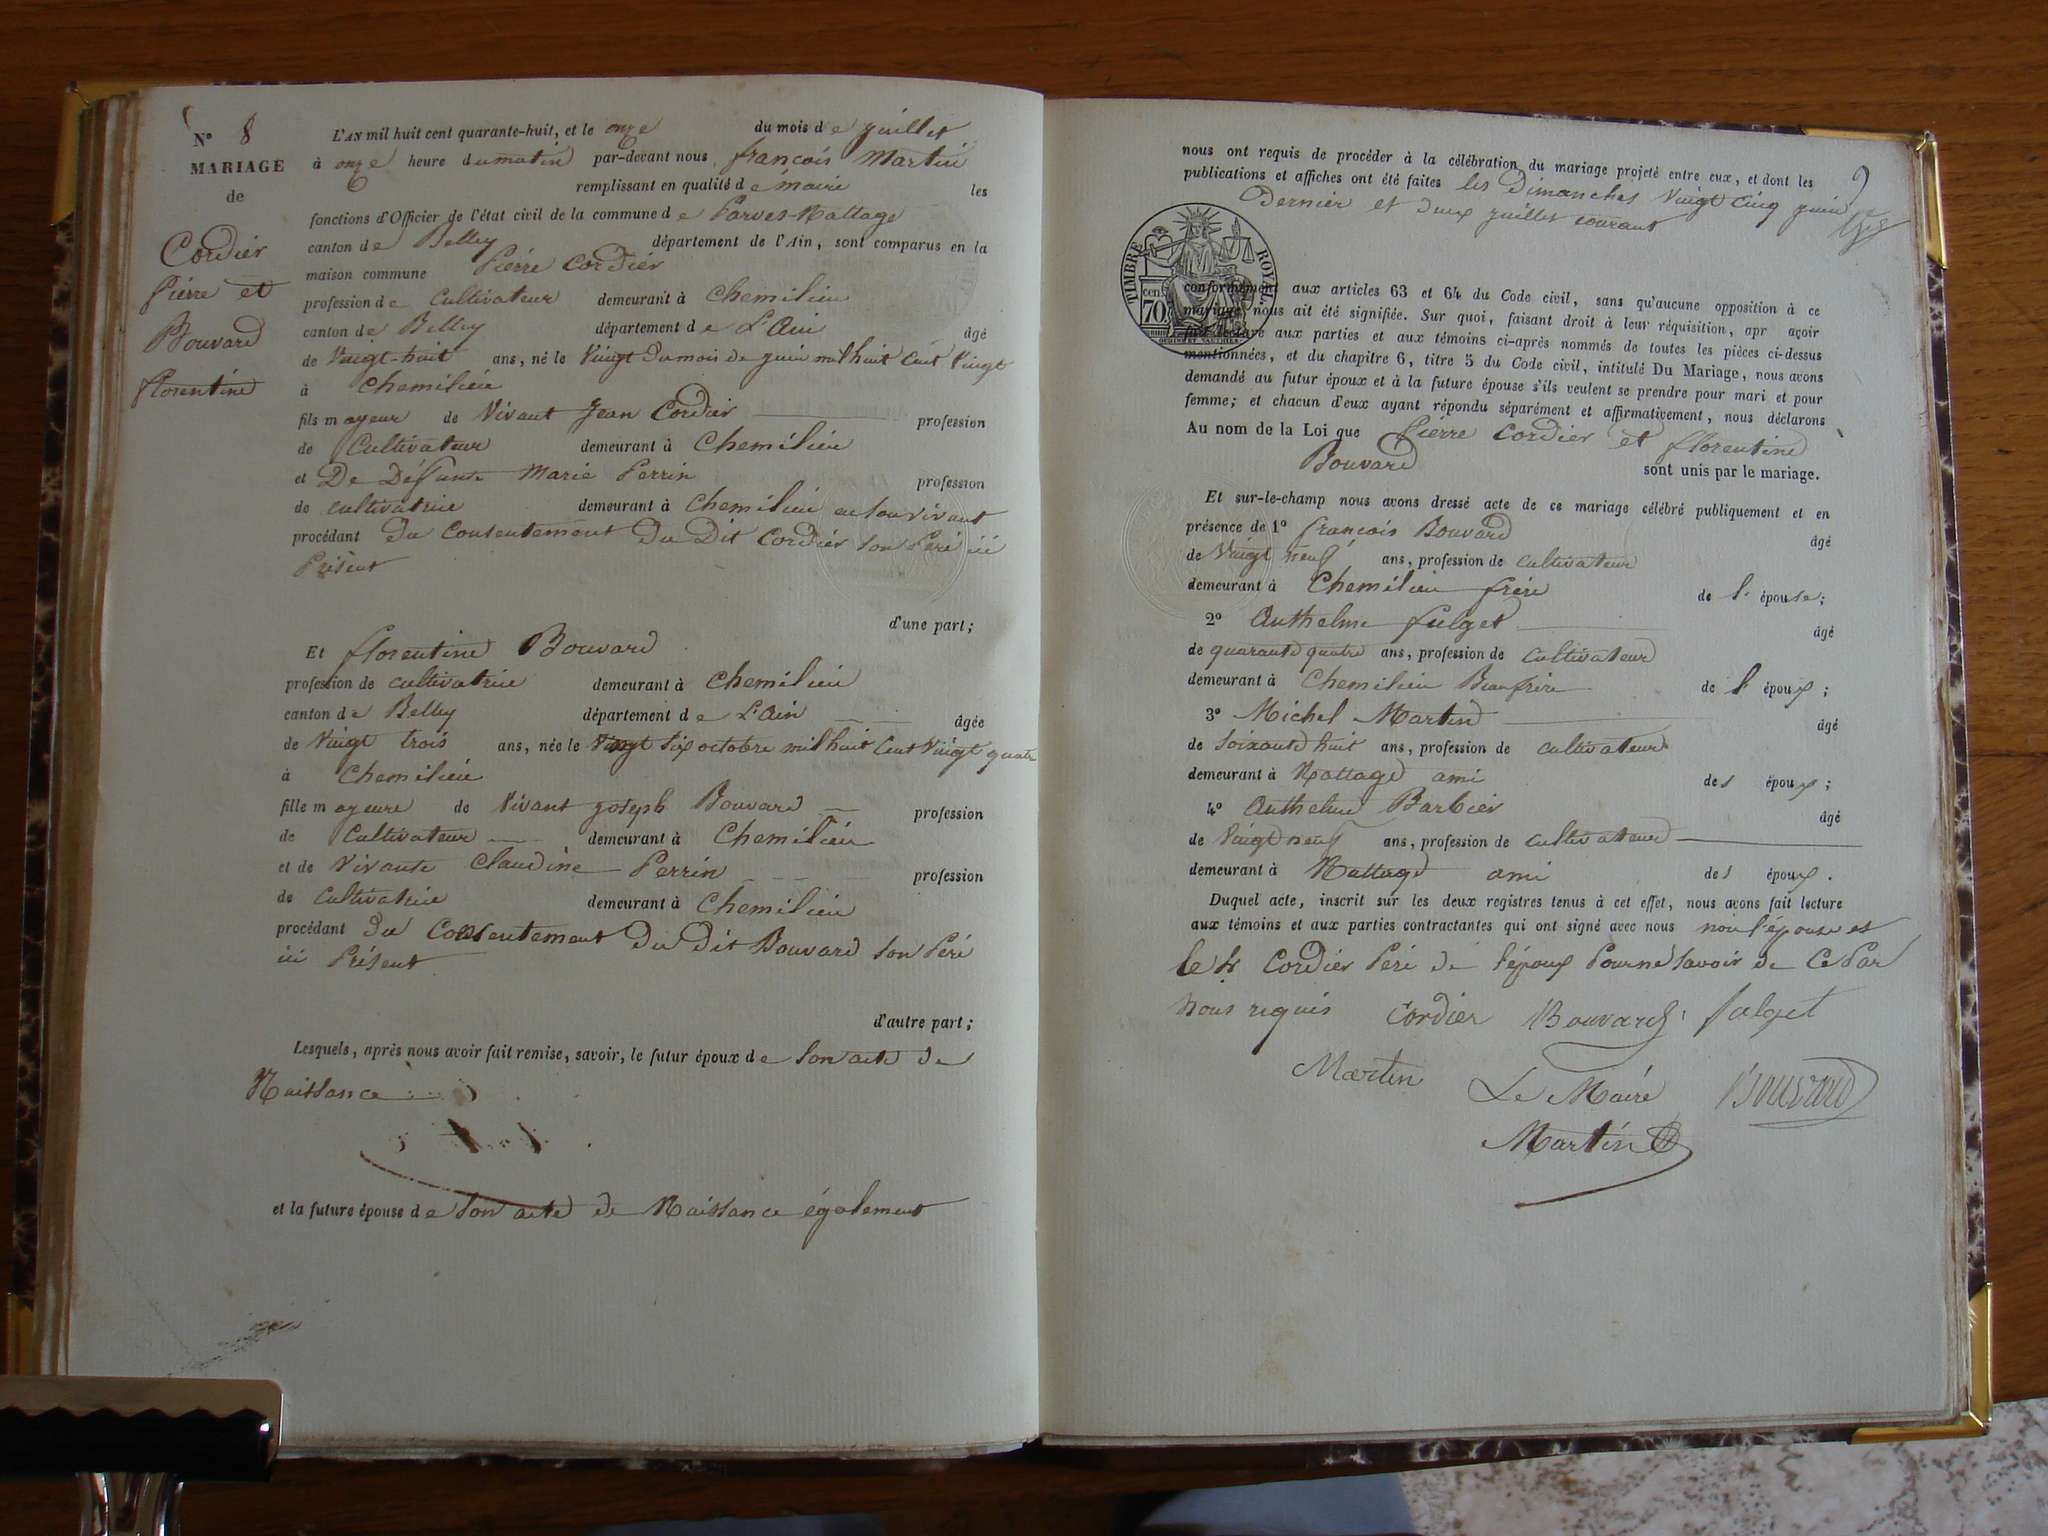 N° 8
MARIAGE
de
Cordier
Pierre et
Bouvard
florentine
L'AN mil huit cent quarante-huit, et le onze du mois de juillet
à onze heure du matin par-devant nous, françois Martin
remplissant en qualité de maire les
fonctions d'Officier de l'état civil de la commune de Parves-Nattage
canton de Belley département de l'Ain, sont comparus en la
maison commune Pierre Cordier
profession de Cultivateur demeurant à Chemilieu
canton de Belley département de L'Ain âgé
de Vingt-huit ans, né le Vingt du mois de juin mil huit Cent Vingt
à Chemilieu
fils mayeur de Vivant Jean Cordier profession
de Cultivateur demeurant à Chemilieu
et De Défunte Marie Perrin profession
de cultivatrice demeurant à Chemilieu en son vivant
procédant du Consentement du Dit Cordier son Pere ici
Présent
d'une part;
Et florentine Bouvard
profession de cultivatrice demeurant à Chemilieu
canton de Belley département de L'Ain âgée
de Vingt trois ans, née le Vingt six octobre mil huit Cent Vingt quatre
à Chemilieu
fille mayeure de Vivant joseph Bouvard profession
de Cultivateur demeurant à Chemilieu
et de Vivante Claudine Perrin profession
de cultivatrice demeurant à Chemilieu
procédant du Consentement du Dit Bouvard son Pere
ici Présent
d'autre part;
Lesquels, après nous avoir fait remise, savoir, le futur époux de son acte de
Naissance
et la future épouse de son acte de Naissance également
nous ont requis de procéder à la célébration du mariage projeté entre eux, et dont les
publications et affiches ont été faites les Dimanches Vingt Cinq juin
Dernier et deux juillet courant
TIMBRE ROYAL.
cen.
70.
conformément aux articles 63 et 64 du Code civil, sans qu'aucune opposition à ce
mariage nous ait été signifiée. Sur quoi, faisant droit à leur réquisition, apr açoir
fait lecture aux parties et aux témoins ci-après nommés de toutes les pièces ci-dessus
mentionnées, et du chapitre 6, titre 5 du Code civil, intitulé Du Mariage, nous avons
demandé au futur époux et à la future épouse s'ils veulent se prendre pour mari et pour
femme; et chacun d'eux ayant répondu séparément et affirmativement, nous déclarons
Au nom de la Loi que Pierre Cordier et florentine
Bouvard sont unis par le mariage.
Et sur-le-champ nous avons dressé acte de ce mariage célébré publiquement et en
présence de 1° françois Bouvard âgé
de Vingt neuf ans, profession de cultivateur
demeurant à Chemilieu frère de l' épouse;
2° Anthelme fulget âgé
de quarante quatre ans, profession de cultivateur
demeurant à Chemilieu Beaufrère de l' époux;
3° Michel Martin âgé
de soixante huit ans, profession de cultivateur
demeurant à Nattage ami des époux;
4° Anthelme Barbier âgé
de Vingt neuf ans, profession de cultivateur
demeurant à Nattage ami des époux.
Duquel acte, inscrit sur les deux registres tenus à cet effet, nous avons fait lecture
aux témoins et aux parties contractantes qui ont signé avec nous non l'épouse et
le Sr Cordier Père de l'époux Pour ne savoir de Ce Par
Nous requis Cordier Bouvard falget
Martin Le Maire Bouvard
Martin